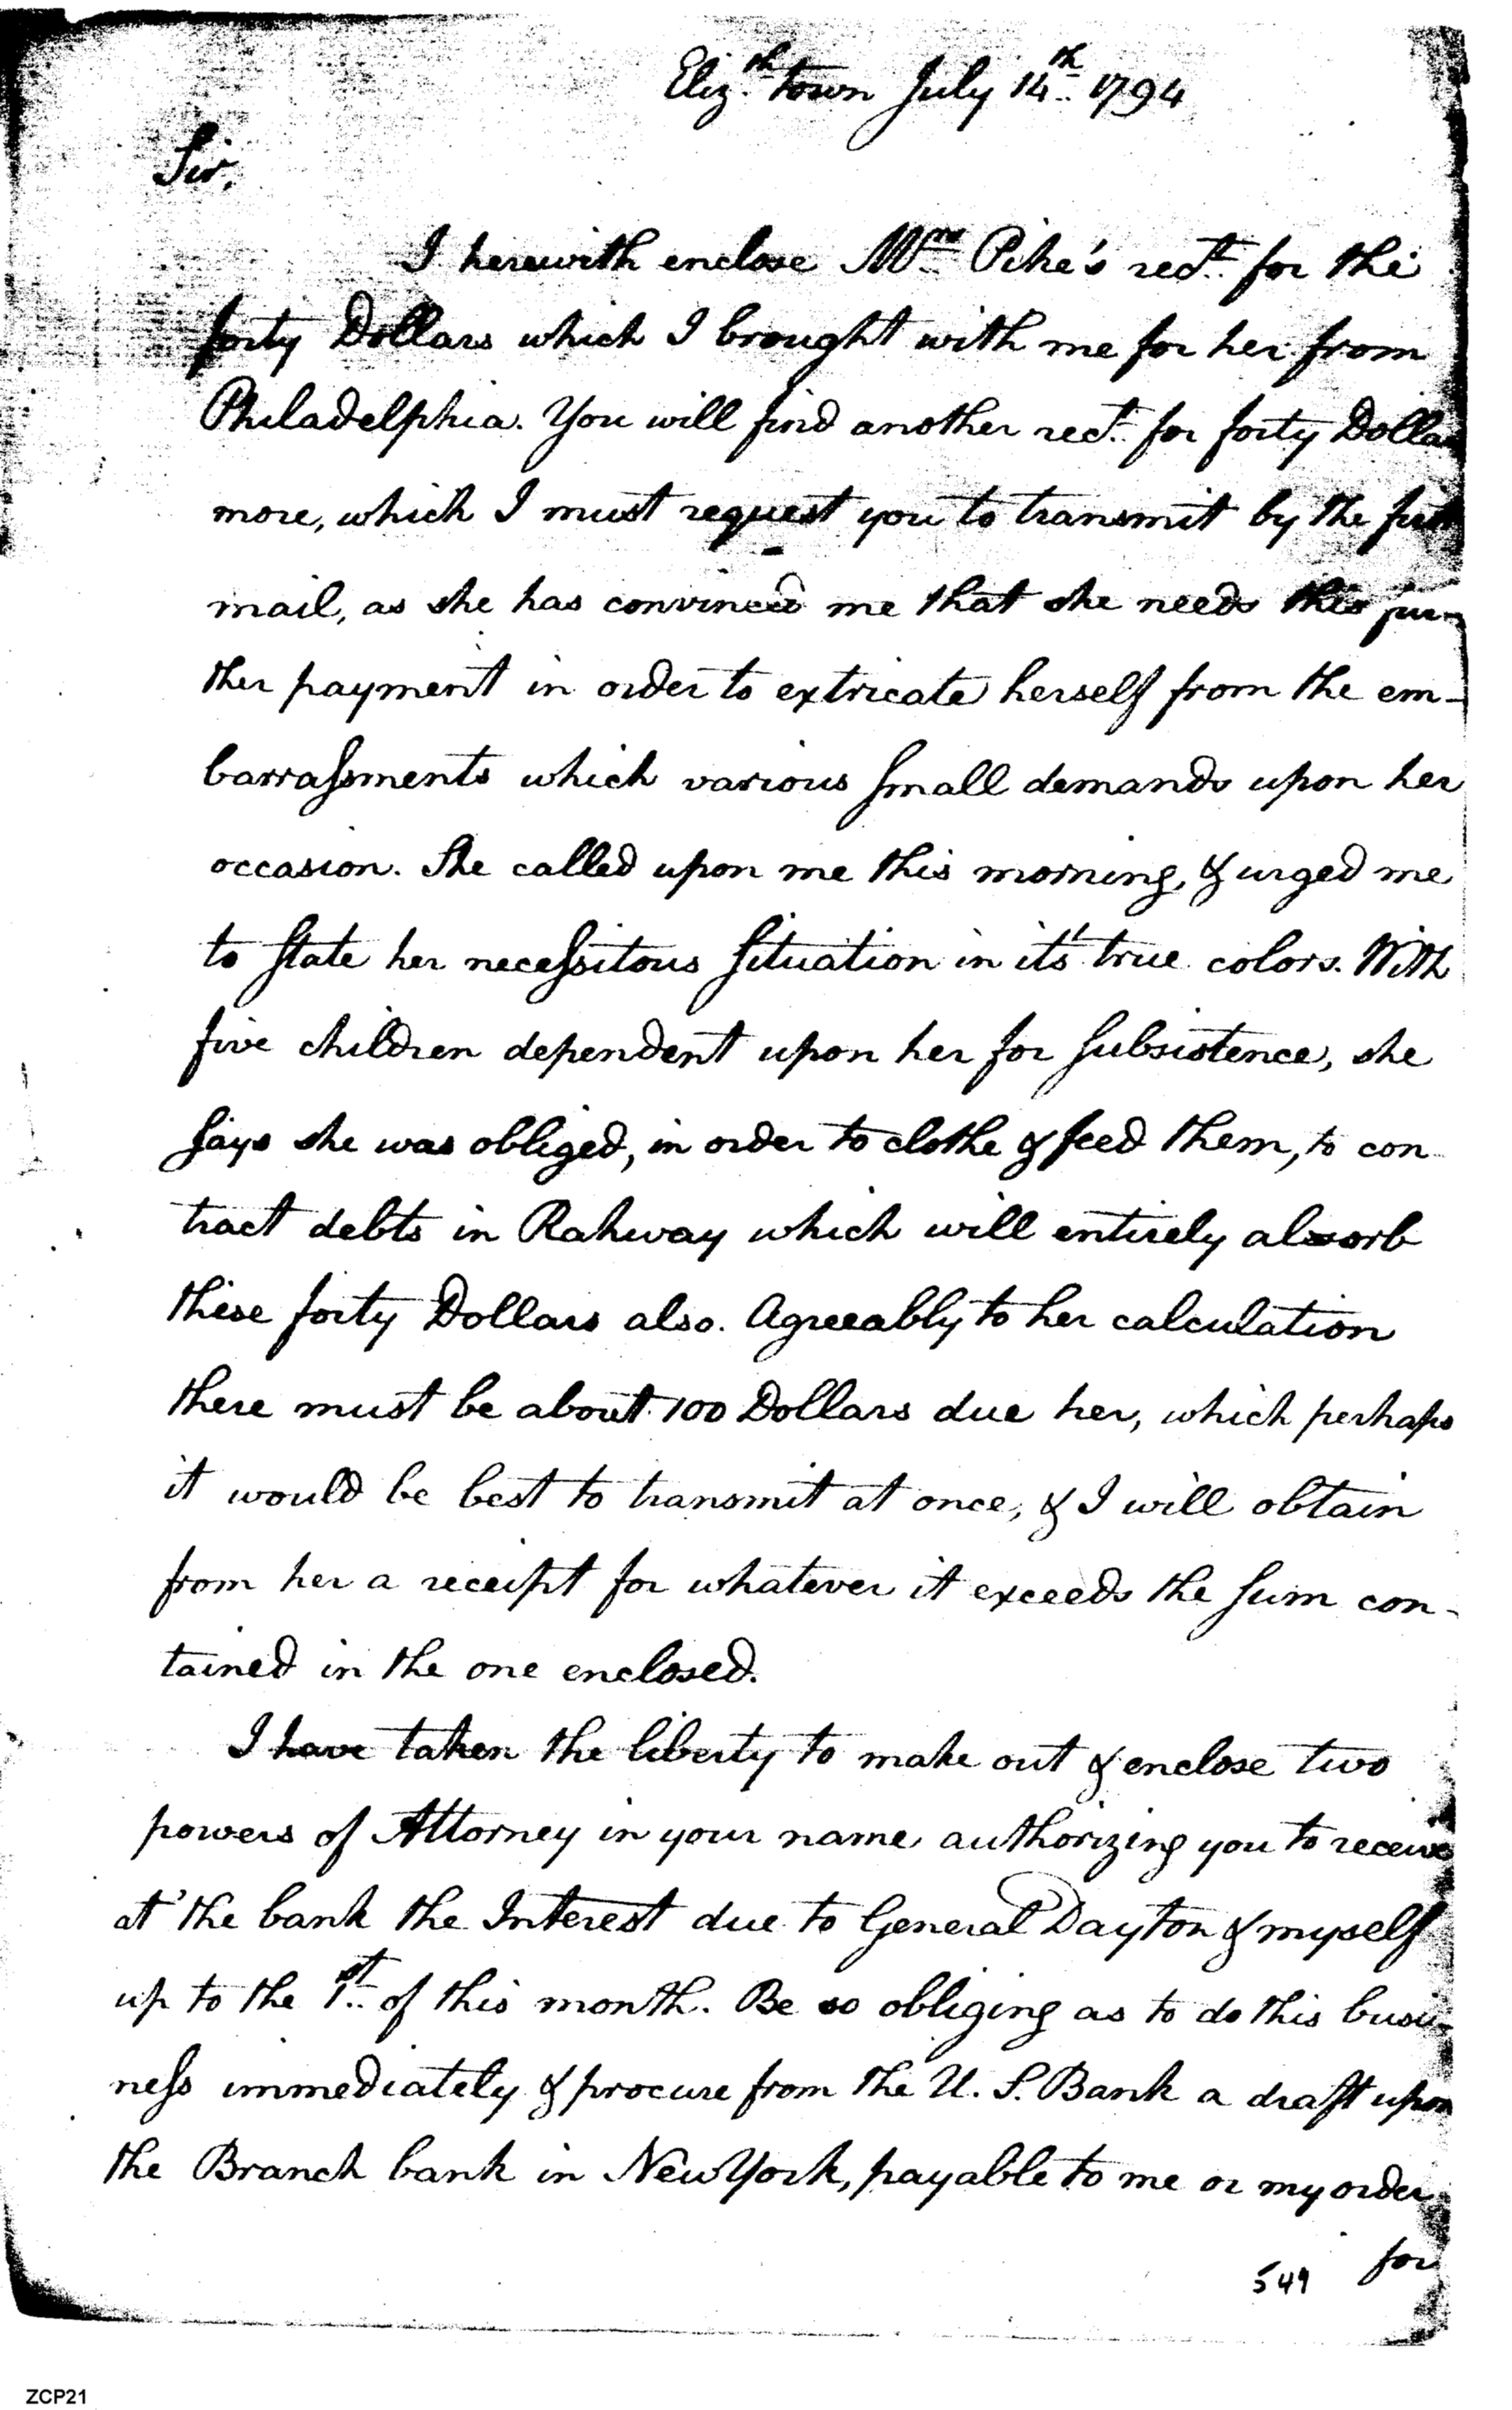 Eliz.th town July 14th 1794
Sir,
I herewith enclose Mrs Pike's rect. for the
forty Dollars which I brought with me for her from
Philadelphia. You will find another rect. for forty Dollars
more, which I must request you to transmit by the first
mail, as she has convinced me that she needs this fur-
ther payment in order to extricate herself from the em-
barrassments which various small demands upon her
occasion. She called upon me this morning, & urged me
to state her necessitous situation in it's true colors. With
five children dependent upon her for subsistence, she
says she was obliged, in order to clothe & feed them, to con-
tract debts in Rahway which will entirely absorb
these forty Dollars also. Agreeably to her calculation
there must be about 100 Dollars due her, which perhaps
it would be best to transmit at once, & I will obtain
from her a receipt for whatever it exceeds the sum con-
tained in the one enclosed.
I have taken the liberty to make out & enclose two
powers of Attorney in your name authorizing you to receive
at the bank the Interest due to General Dayton & myself
up to the 1st. of this month. Be so obliging as to do this busi-
ness immediately & procure from the U. S. Bank a draft upon
the Branch bank in New York, payable to me or my order
for
549
ZCP21